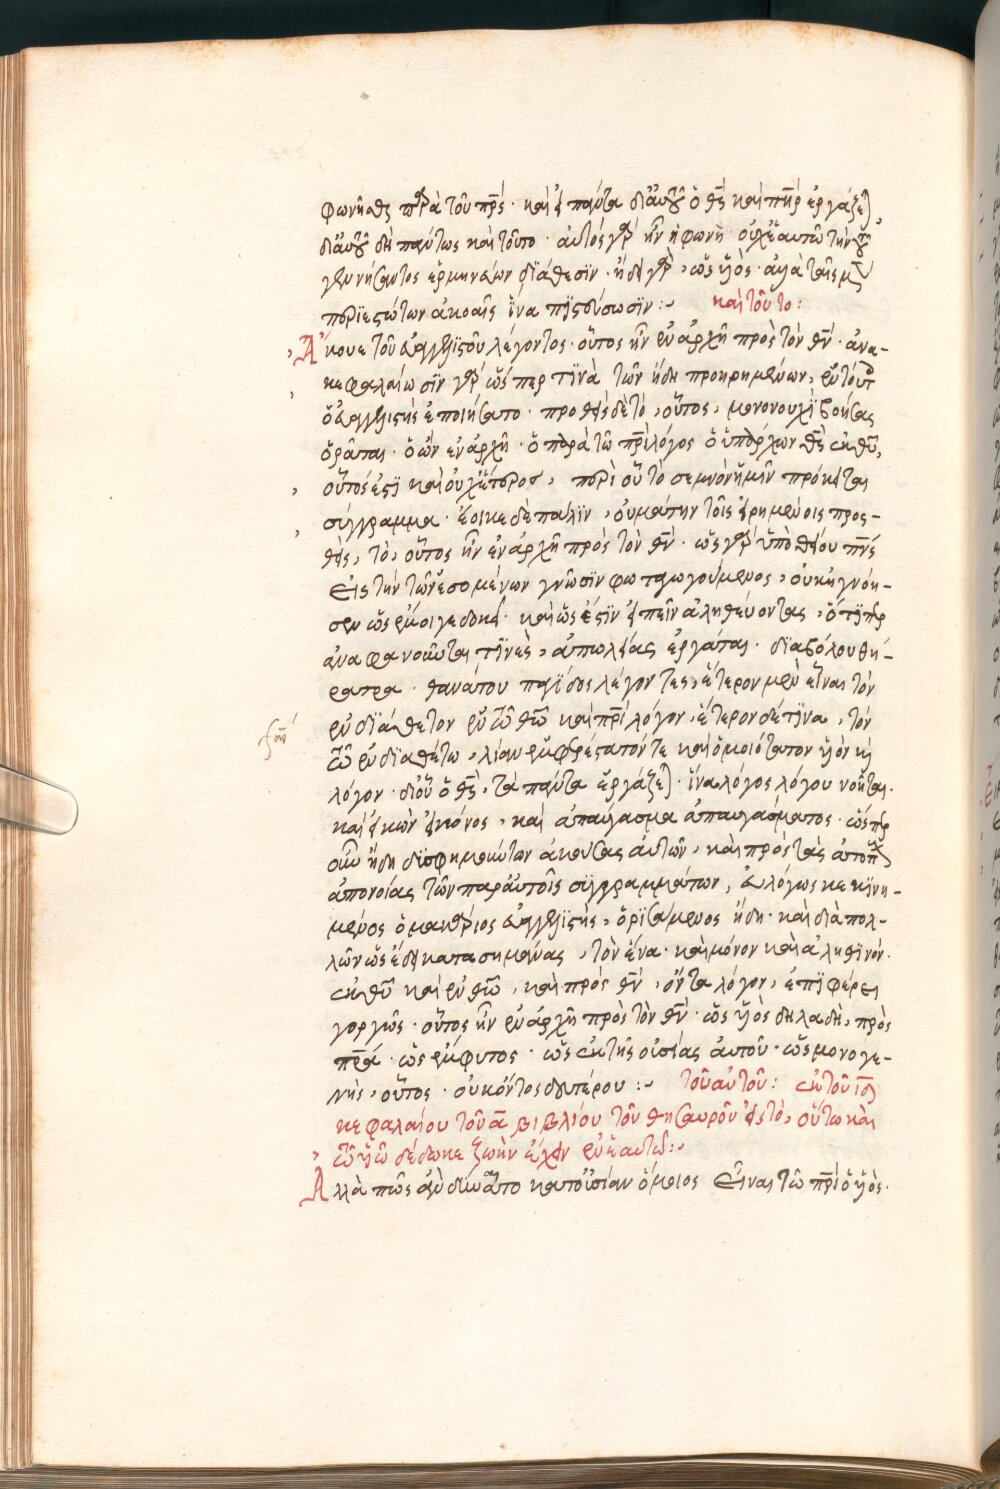 φωνῆσθς παρὰ τοῦ πρς· καὶ εἰ πάντα διαυτοῦ ὁ θς καὶ πηρ ἐργάζε
διαυτοῦ δὴ πάντως καὶ τοῦτο· αὐτὸς γὰρ ἦν ἡ φωνὴ· ἐν ἑαυτῶ τὴν τοῦ
γεννήσαντος ἑρμηνεύων διάθεσϊν· ἤδει γὰρ, ὡς ὑϊὸς· ἀλλὰ ταῖς
περϊεστώτων ἀκοαῖς ἵνα πϊστεύσωσϊν:~ καὶ τοῦτο:
Ἄκουε τοῦ εὐαγγελϊστοῦ λέγοντος· οὗτος ἦν ἐν ἀρχῆ πρὸς τὸν θν· ἀνα-
κεφαλαίωσϊν γὰρ ὥσπερ τϊνὰ τῶν ἤδη προειρημένων, ἐν τούτ
ὁ εὐαγγελϊστὴς ἐποιήσατο· προσθεὶς δὲ τὸ, οὗτος, μονονουχὶ βοήσας
ὁρᾶται· ὁ ὢν ἐν ἀρχῆ· ὁ παρὰ τῶ πρϊ λόγος ὁ ὑπάρχων θς ἐκ θυ,
οὗτός ἐστϊ καὶ οὐχ ἕτερος, περὶ οὗ τὸ σεμνὸν ἡμῖν πρόκειται
σύγγραμμα· ἔοικε δὲ πάλϊν, οὐ μάτην τοῖς εἰρημένοις προς-
θεὶς, τὸ, οὗτος ἦν ἐν ἀρχῆ πρὸς τὸν θν· ὡς γὰρ ὑπὸ θείου πνς
εἰς τὴν τῶν ἐσομένων γνῶσϊν φωταγωγούμενος, οὐκ ἠγνόη-
σεν ὡς ἐμοίγε δοκεῖ· καὶ ὡς ἔστϊν εἰπεῖν ἀληθεύοντας, ὅτϊπερ
ἀναφανοῦνται τϊνὲς, ἀπωλείας ἐργάται· διαβόλου θή-
ρατρα· θανάτου παγίδος λέγοντες, ἕτερον μὲν εἶναι τὸν
ἐνδϊάθετον ἐν τῶ θῶ καὶ πρϊ λόγον, ἕτερον δέ τϊνα, τὸν
τῶ ἐνδϊαθέτω, λίαν ἐμφερέστατόν τε καὶ ὁμοιότατον ὑϊὸν κὴ
λόγον· δι οὗ ὁ θς, τὰ πάντα ἐργάζε· ἵνα λόγος λόγου νοῆται·
καὶ εἰκὼν εἰκόνος, καὶ ἀπαύγασμα ἀπαυγάσματος· ὥσπερ
οὖν ἤδη δϊσφημούντων ἀκούσας αὐτῶν, καὶ πρὸς τὰς
ἀπονοίας τῶν παραυτοῖς συγγραμμάτων, εὐλόγως κεκϊνη-
μένος ὁ μακάριος εὐαγγελϊστὴς, ὁρϊσάμενος ἤδη· καὶ διὰ πολ-
λῶν ὡς ἔδει κατασημήνας, τὸν ἕνα· καὶ μόνον καὶ ἀληθϊνόν·
ἐκ θυ καὶ ἐν θῶ, καὶ πρὸς θν, ὄντα λόγον, ἐπϊφέρει
γοργῶς· οὗτος ἦν ἐν ἀρχῆ πρὸς τὸν θν· ὡς ὑϊὸς δηλαδὴ, πρὸς
πρα· ὡς ἔμφυτος· ὡς ἐκ τῆς οὐσίας αὐτοῦ· ὡς μονογε-
νὴς, οὗτος· οὐκ ὄντος δευτέρου:~ τοῦ αὐτοῦ: ἐκ τοῦ ιδ
κεφαλαίου τοῦ α βιβλίου τῶν θησαυρῶν εἰς τὸ, οὕτω καὶ
τῶ ὑϊῶ δέδωκε ζωὴν ἔχειν ἐν ἑαυτῶ:~
Ἀλλὰ πῶς ἂν δύναιτο κατ οὐσίαν ὅμοιος εἶναι τῶ πρϊ ὁ ὑϊὸς·